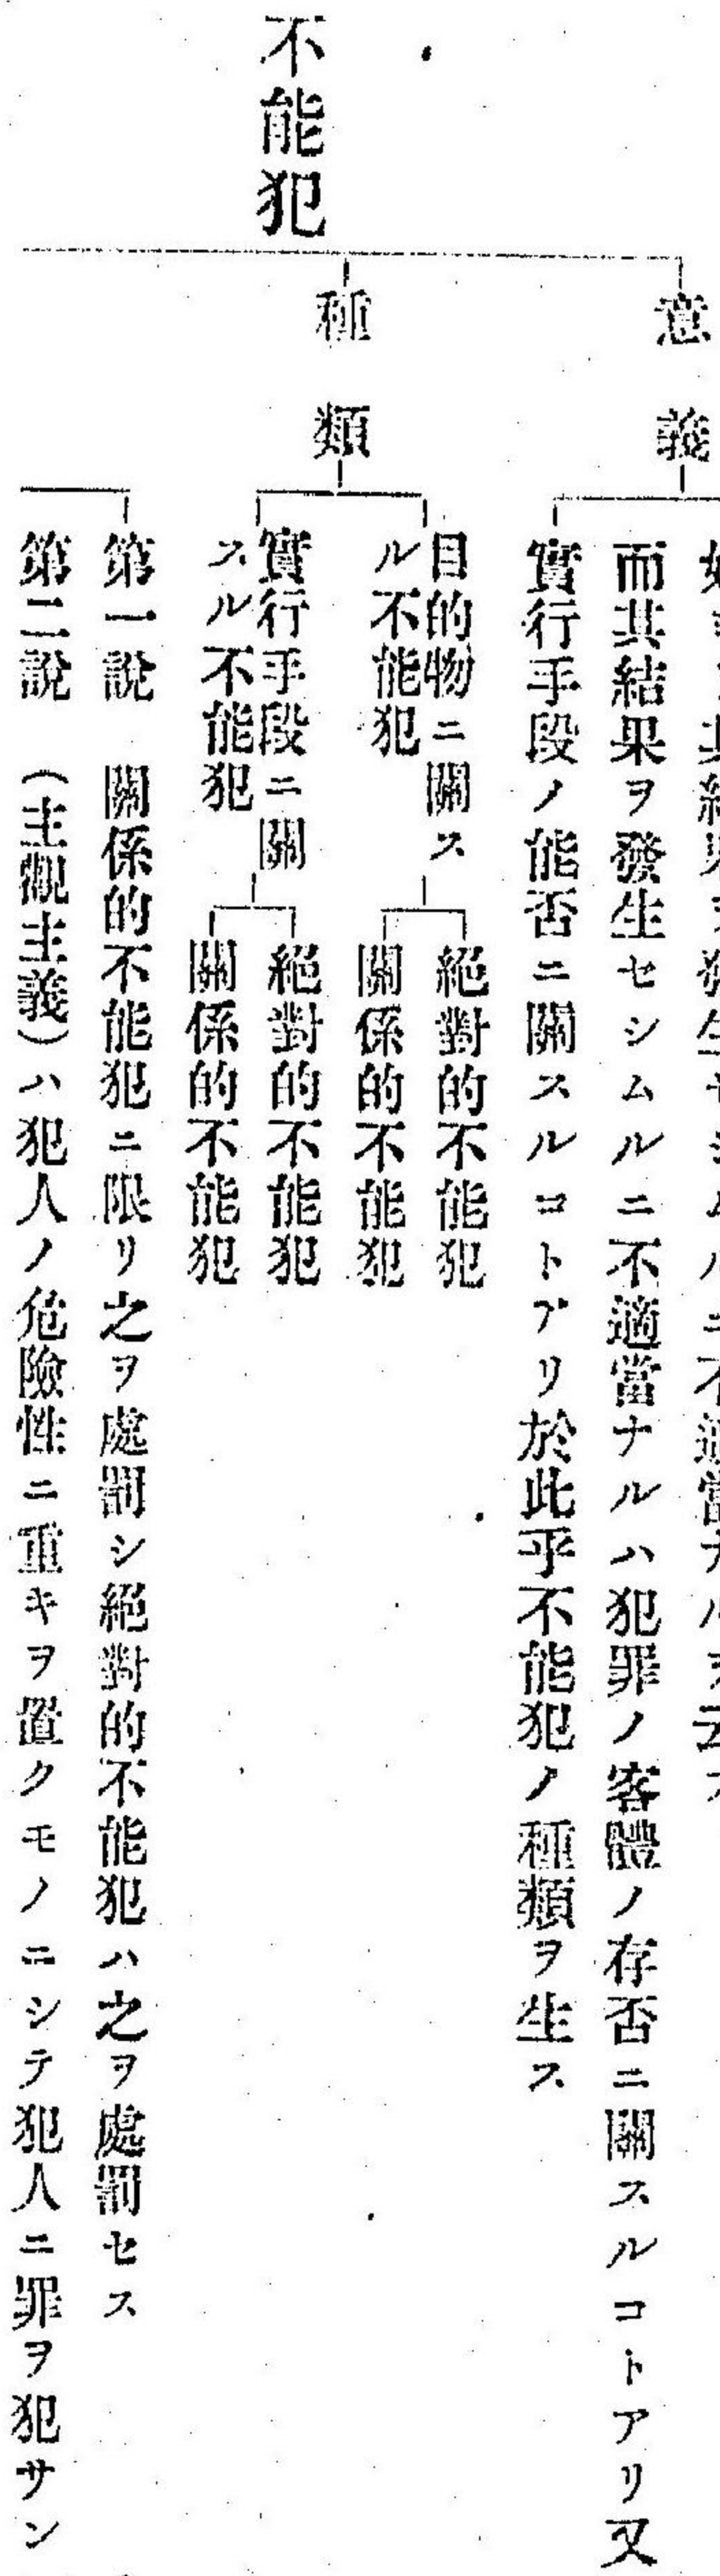 不能犯
意義
其結果ヲ發生セシムルニ不適當ナルヲ云フ
而其結果ヲ發生セシムルニ不適當ナルハ犯罪ノ客體ノ存否ニ關スルコトアリ又
實行手段ノ能否ニ關スルコトアリ於此乎不能犯ノ種類ヲ生ス
種類
目的物ニ關ス
ル不能犯
絕對的不能犯
關係的不能犯
實行手段ニ關
スル不能犯
絕對的不能犯
關係的不能犯
第一說 關係的不能犯ニ限リ之ヲ處罰シ絕對的不能犯ハ之ヲ處罰セス
第二說 (主觀主義)ハ犯人ノ危險性ニ重キヲ置クモノニシテ犯人ニ罪ヲ犯サン